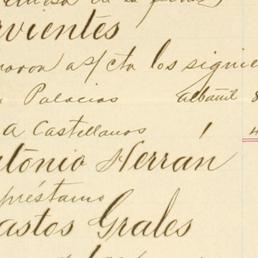 rvientes
naron a/cta los siguie
a Palacios albañil 8
a Castellanos
ntonio Herrán
préstamo
astos Grales